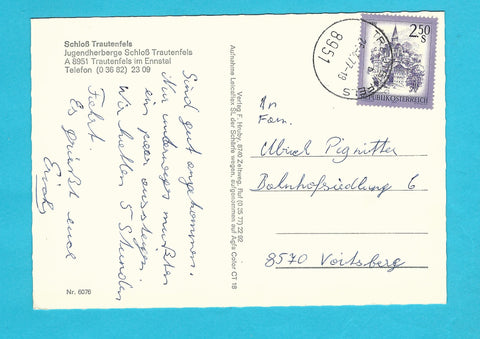 Schloß Trautenfels
Jugendherberge Schloß Trautenfels
A 8951 Trautenfels im Ennstal
Telefon (0 36 82) 23 09
Sind gut angekommen.
Nur unterwegs mußten
ein paar aussteigen.
Wir hatten 5 Stunden
Fahrt.
Es grüßt euch
Nr. 6076
Verlag F. Hruby, 8740 Zeltweg, Ruf (0 35 77) 22 92
Aufnahme Leicaflex SL der Schärfe wegen, aufgenommen auf Agfa Color CT 18
8951
2,50
S
REPUBLIK ÖSTERREICH
An
Fam.
Ulrich Pignitter
Bahnhofsiedlung 6
8570 Voitsberg